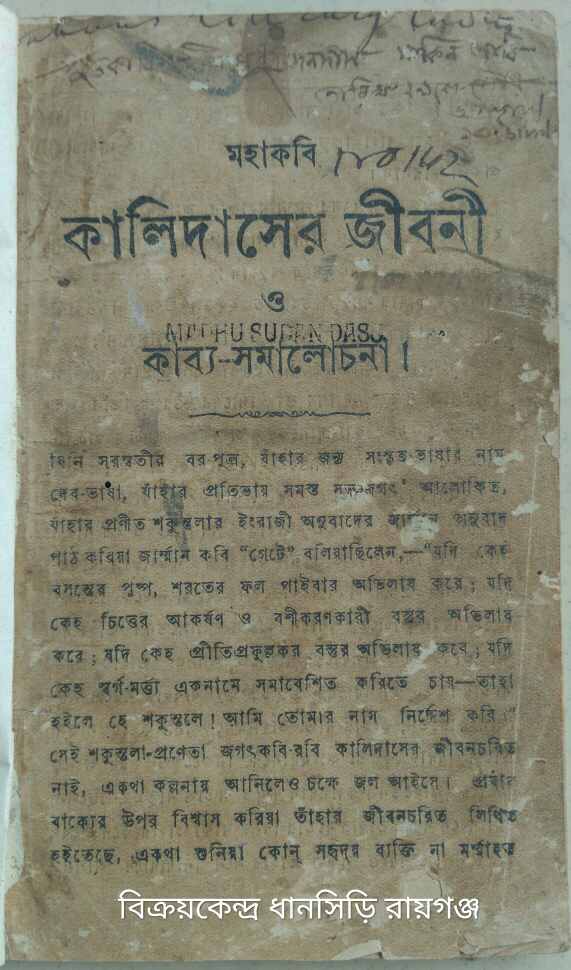 মহাকবি
কালিদাসের জীবনী
ও
MADHU SUDAN DAS
কাব্য-সমালোচনা।
যিনি সরস্বতীর বরপুত্র, যাঁহার জন্ম সংস্কৃত-ভাষার নাম
দেব-ভাষা, যাঁহার প্রতিভায় সমস্ত আলোকিত,
যাঁহার প্রণীত শকুন্তলার ইংরাজী অনুবাদের জার্ম্মান অনুবাদ
পাঠ করিয়া জার্ম্মান কবি “গেটে” বলিয়াছিলেন,—“যদি কেহ
বসন্তের পুষ্প, শরতের ফল পাইবার অভিলাষ করে; যদি
কেহ চিত্তের আকর্ষণ ও বশীকরণকারী বস্তুর অভিলাষ
করে; যদি কেহ প্রীতিপ্রফুল্লকর বস্তুর অভিলাষ করে; যদি
কেহ স্বর্গ-মর্ত্ত্য একনামে সমাবেশিত করিতে চায়—তাহা
হইলে হে শকুন্তলে! আমি তোমার নাম নির্দ্দেশ করি।”
সেই শকুন্তলা-প্রণেতা জগৎকবি-রবি কালিদাসের জীবনচরিত
নাই, একথা কল্পনায় আনিলেও চক্ষে জল আইসে। প্রবাদ
বাক্যের উপর বিশ্বাস করিয়া তাঁহার জীবনচরিত লিখিত
হইতেছে, একথা শুনিয়া কোন্ সহৃদয় ব্যক্তি না মর্ম্মাহত
বিক্রয়কেন্দ্র ধানসিড়ি রায়গঞ্জ